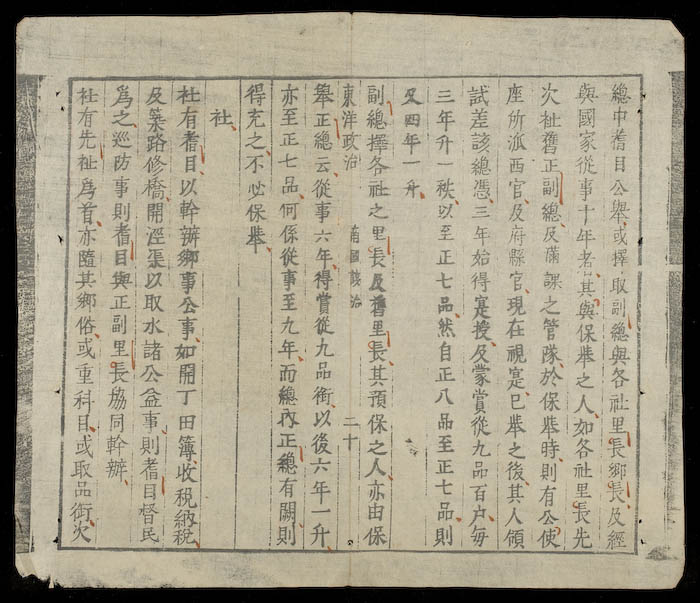 總中耆目公舉或擇取副總與各社里長鄉長及經
與國家從事十年者其與保舉之人如各社里長先
次祉舊正副總及滿課之管隊於保舉時則有公使
座所派西官及府縣官現在視寔已舉之後其人領
試差該總憑三年始得寔授及蒙賞從九品百户每
三年升一秩以至正七品然自正八品至正七品則
又四年一升
副總擇各社之里長及舊里長其預保之人亦由保
東洋政治 南國該治 二十
舉正總云從事六年得賞從九品銜以後六年一升
亦至正七品何係從事至九年而總內正總有闕則
得充之不必保舉
社
社有耆目以幹辦鄉事公事如開丁田簿收税納税
及築路修橋開涇張以取水諸公益事則耆目督民
爲之巡防事則耆目與正副里長協同幹辦
社有先祉爲首亦隨其鄉俗或重科目或取品銜次